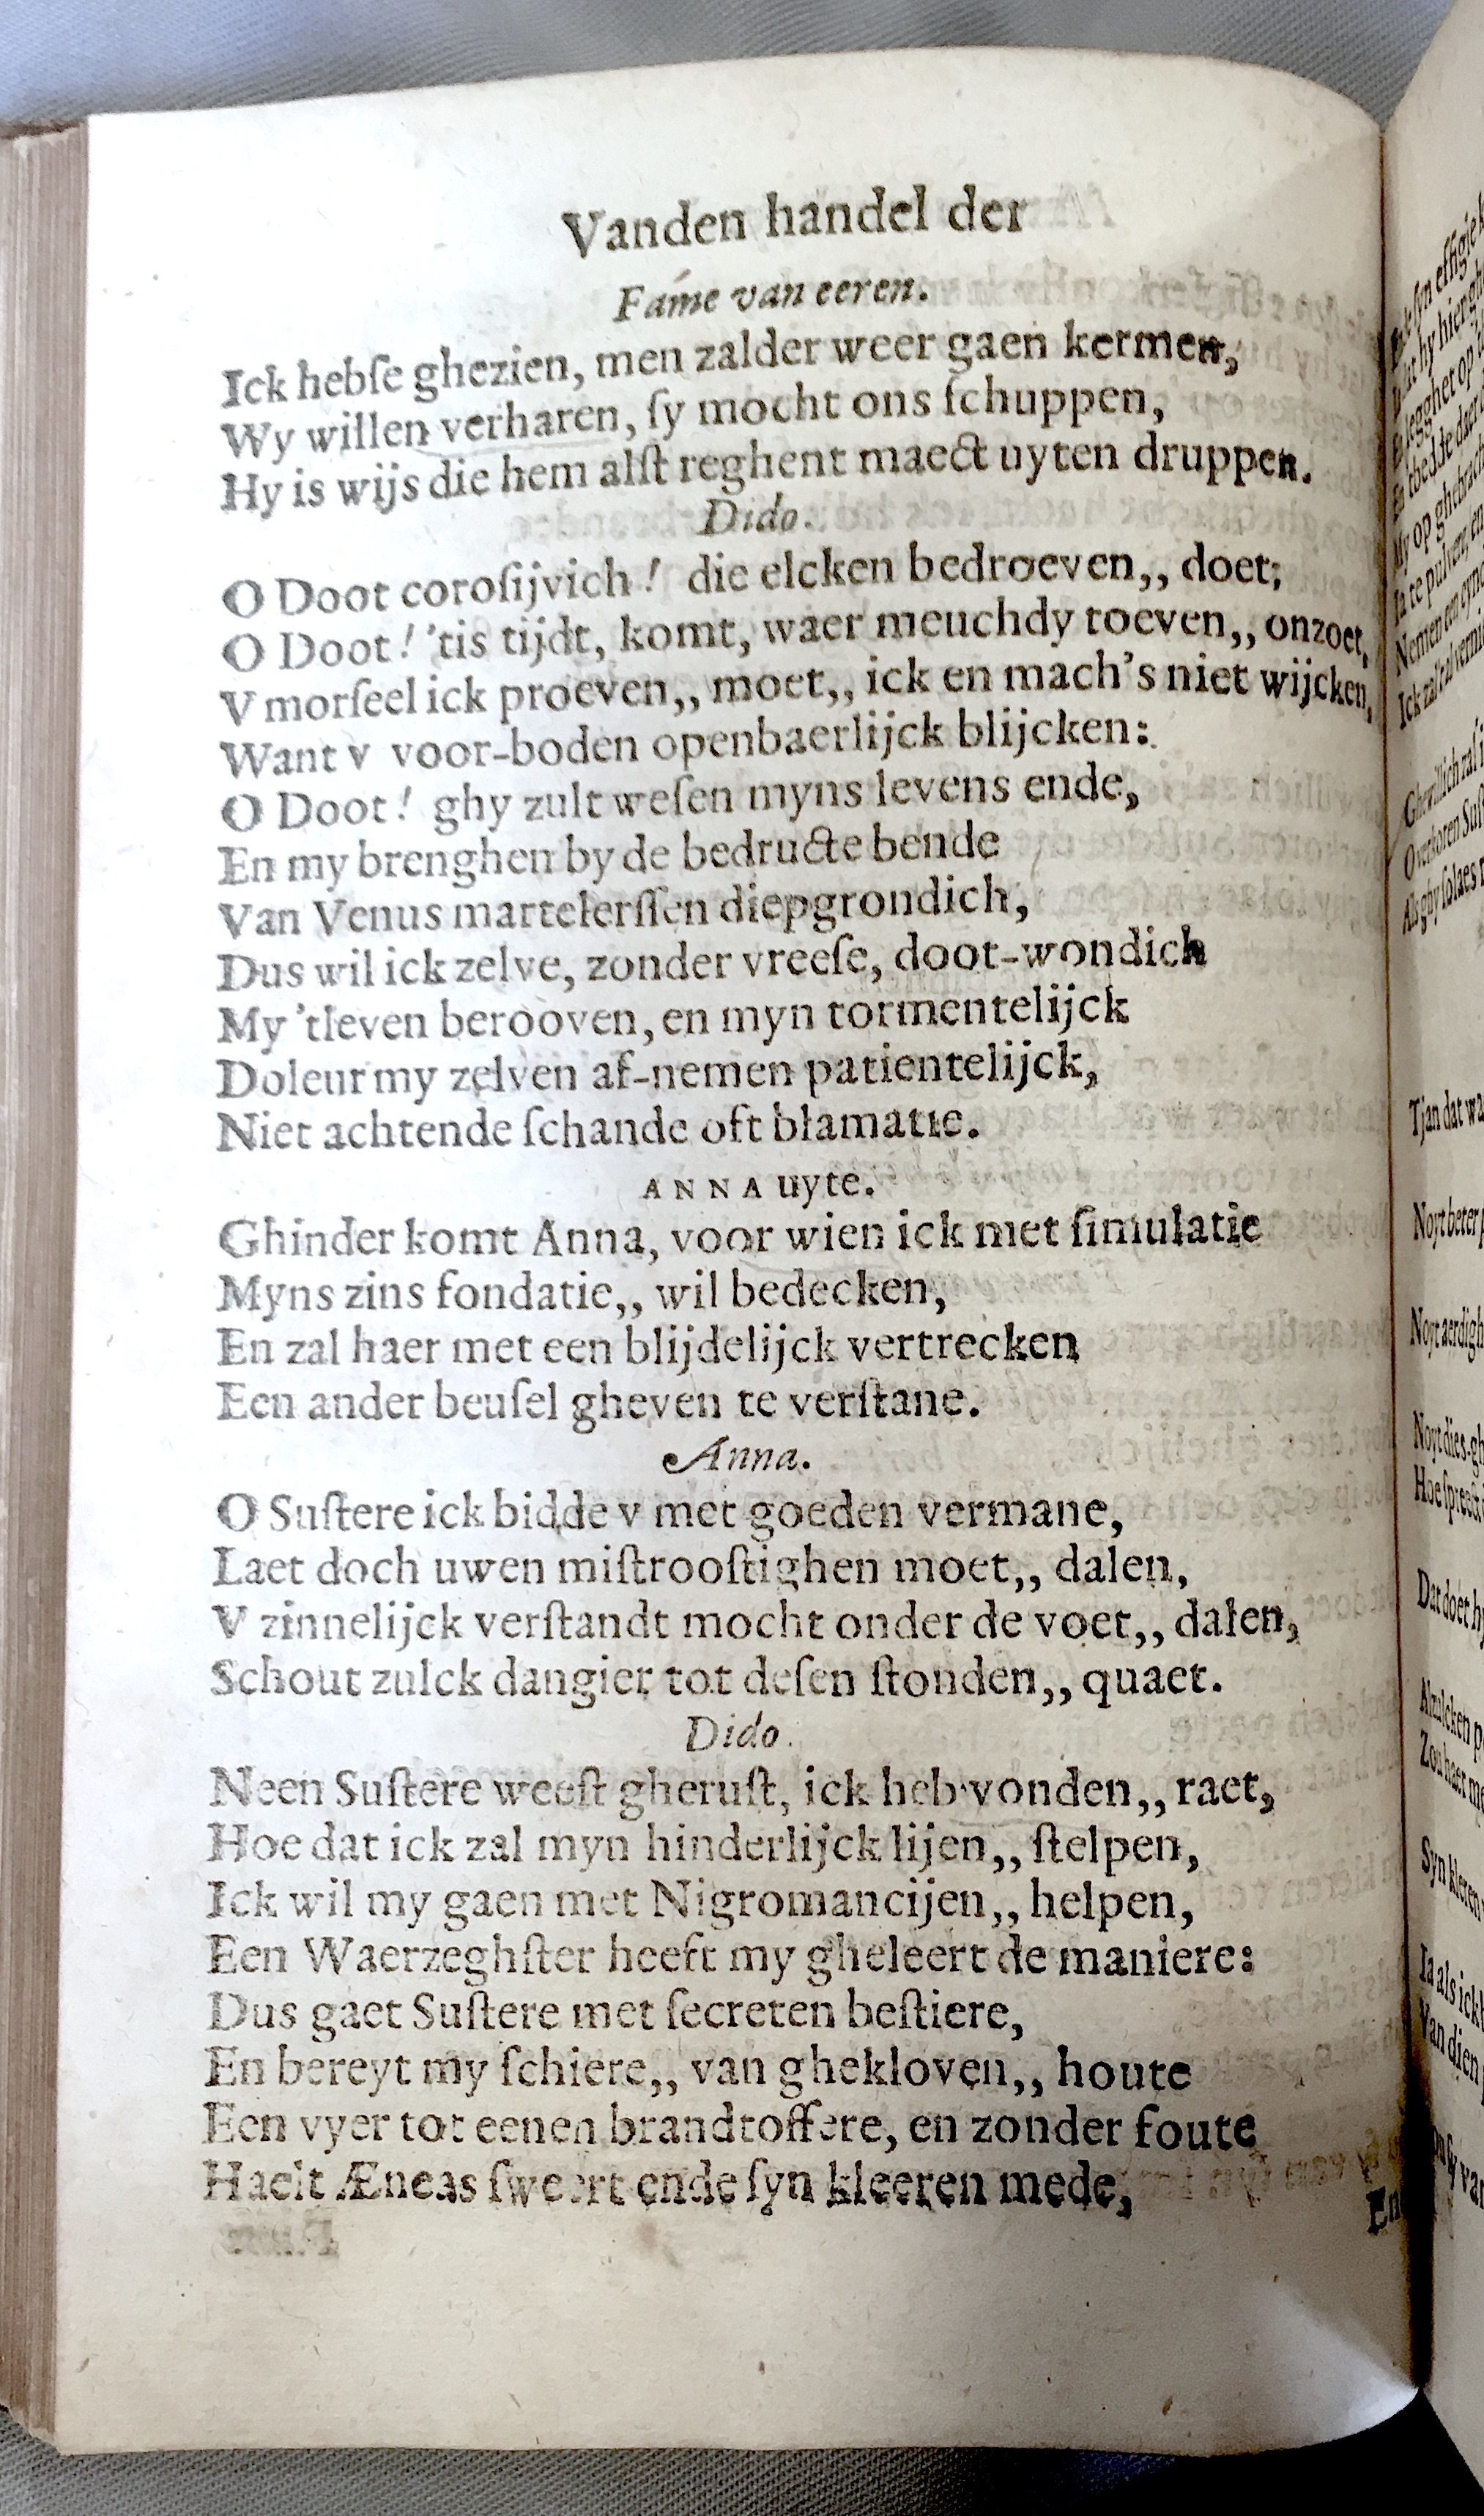 Vanden handel der
Fame van eeren.
Ick hebſe ghezien, men zalder weer gaen kermen,
Wy willen verharen, ſy mocht ons ſchuppen,
Hy is wijs die hem alſt reghent maect uyten druppen.
Dido.
O Doot coroſijvich! die elcken bedroeven,, doet;
O Doot! 'tis tijdt, komt, waer meuchdy toeven,, onzoet,
V morſeel ick proeven,, moet,, ick en mach's niet wijcken,
Want v voor-boden openbaerlijck blijcken:
O Doot! ghy zult weſen myns levens ende,
En my brenghen by de bedructe bende
Van Venus martelerſſen diepgrondich,
Dus wil ick zelve, zonder vreeſe, doot-wondich
My 'tleven berooven, en myn tormentelijck
Doleur my zelven af-nemen patientelijck,
Niet achtende ſchande oft blamatie.
ANNA uyte.
Ghinder komt Anna, voor wien ick met ſimulatie
Myns zins fondatie,, wil bedecken,
En zal haer met een blijdelijck vertrecken
Een ander beuſel gheven te verſtane.
Anna.
O Suſtere ick bidde v met goeden vermane,
Laet doch uwen miſtrooſtighen moet,, dalen,
V zinnelijck verſtandt mocht onder de voet,, dalen,
Schout zulck dangier tot deſen ſtonden,, quaet.
Dido.
Neen Suſtere weeſt gheruſt, ick heb vonden,, raet,
Hoe dat ick zal myn hinderlijck lijen,, ſtelpen,
Ick wil my gaen met Nigromancijen,, helpen,
Een Waerzeghſter heeft my gheleert de maniere:
Dus gaet Suſtere met ſecreten beſtiere,
En bereyt my ſchiere,, van ghekloven,, houte
Een vyer tot eenen brandtoffere, en zonder foute
Haelt Æneas ſweert ende ſyn kleeren mede,
En